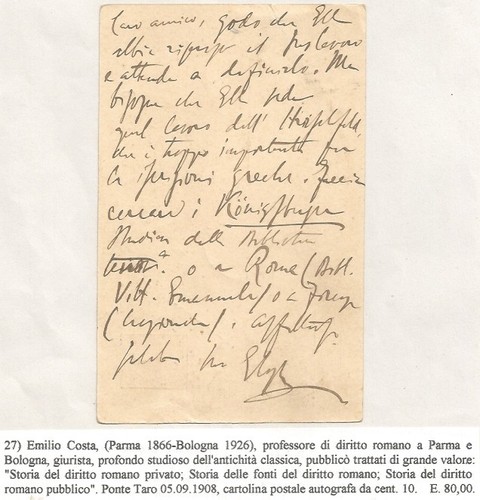 Caro amico, godo che Ella
abbia ripreso il Suo lavoro
e attenda a definirlo. Ma
bisogna che Ella veda
quel lavoro dell' Hirschfeld,
che è troppo importante fra
le iscrizioni greche. Faccia
cercare i Königsberger
Studien dalla Biblioteca
o a Roma (Bibl.
Vitt. Emanuele) o a Firenze
(Nazionale). affettuosi
saluti
27) Emilio Costa, (Parma 1866-Bologna 1926), professore di diritto romano a Parma e
Bologna, giurista, profondo studioso dell'antichità classica, pubblicò trattati di grande valore:
"Storia del diritto romano privato; Storia delle fonti del diritto romano; Storia del diritto
romano pubblico". Ponte Taro 05.09.1908, cartolina postale autografa da cent. 10. E. 80,00.